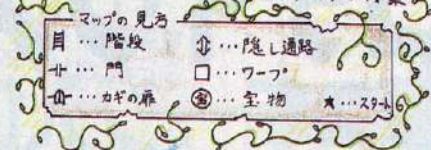 マップの見方
… 階段
… 隠し通路
… 門
… ワープ
… カギの扉
宝 … 宝物
★ … スタート